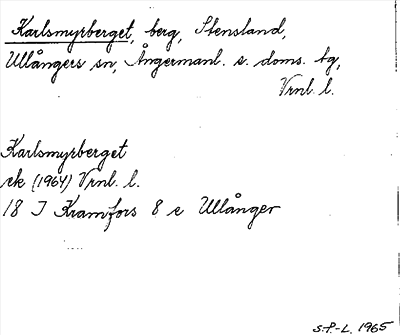 Karlsmyrberget, berg, Stensland,
Ullångers sn, Ångermanl. s. doms. tg,
Vrnl. l.
Karlsmyrberget
ek (1964) Vrnl. l.
18 I Kramfors 8 e Ullånger
S.P.-L. 1965